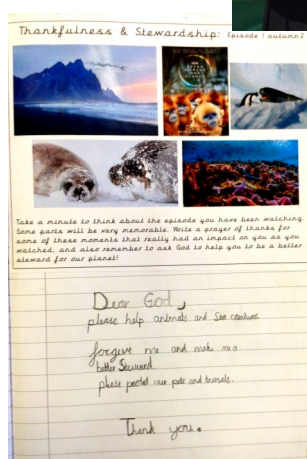 Thankfulness & Stewardship: Episode 1 autumn 2
Take a minute to think about the episode you have been watching.
Some parts will be very memorable. Write a prayer of thanks for
some of these moments that really had an impact on you as you
watched, and also remember to ask God to help you to be a better
steward for our planet!
Dear God,
please help animals and Sea
forgive me and make me a
better Steward.
please protect our pets and animals.
Thank you.